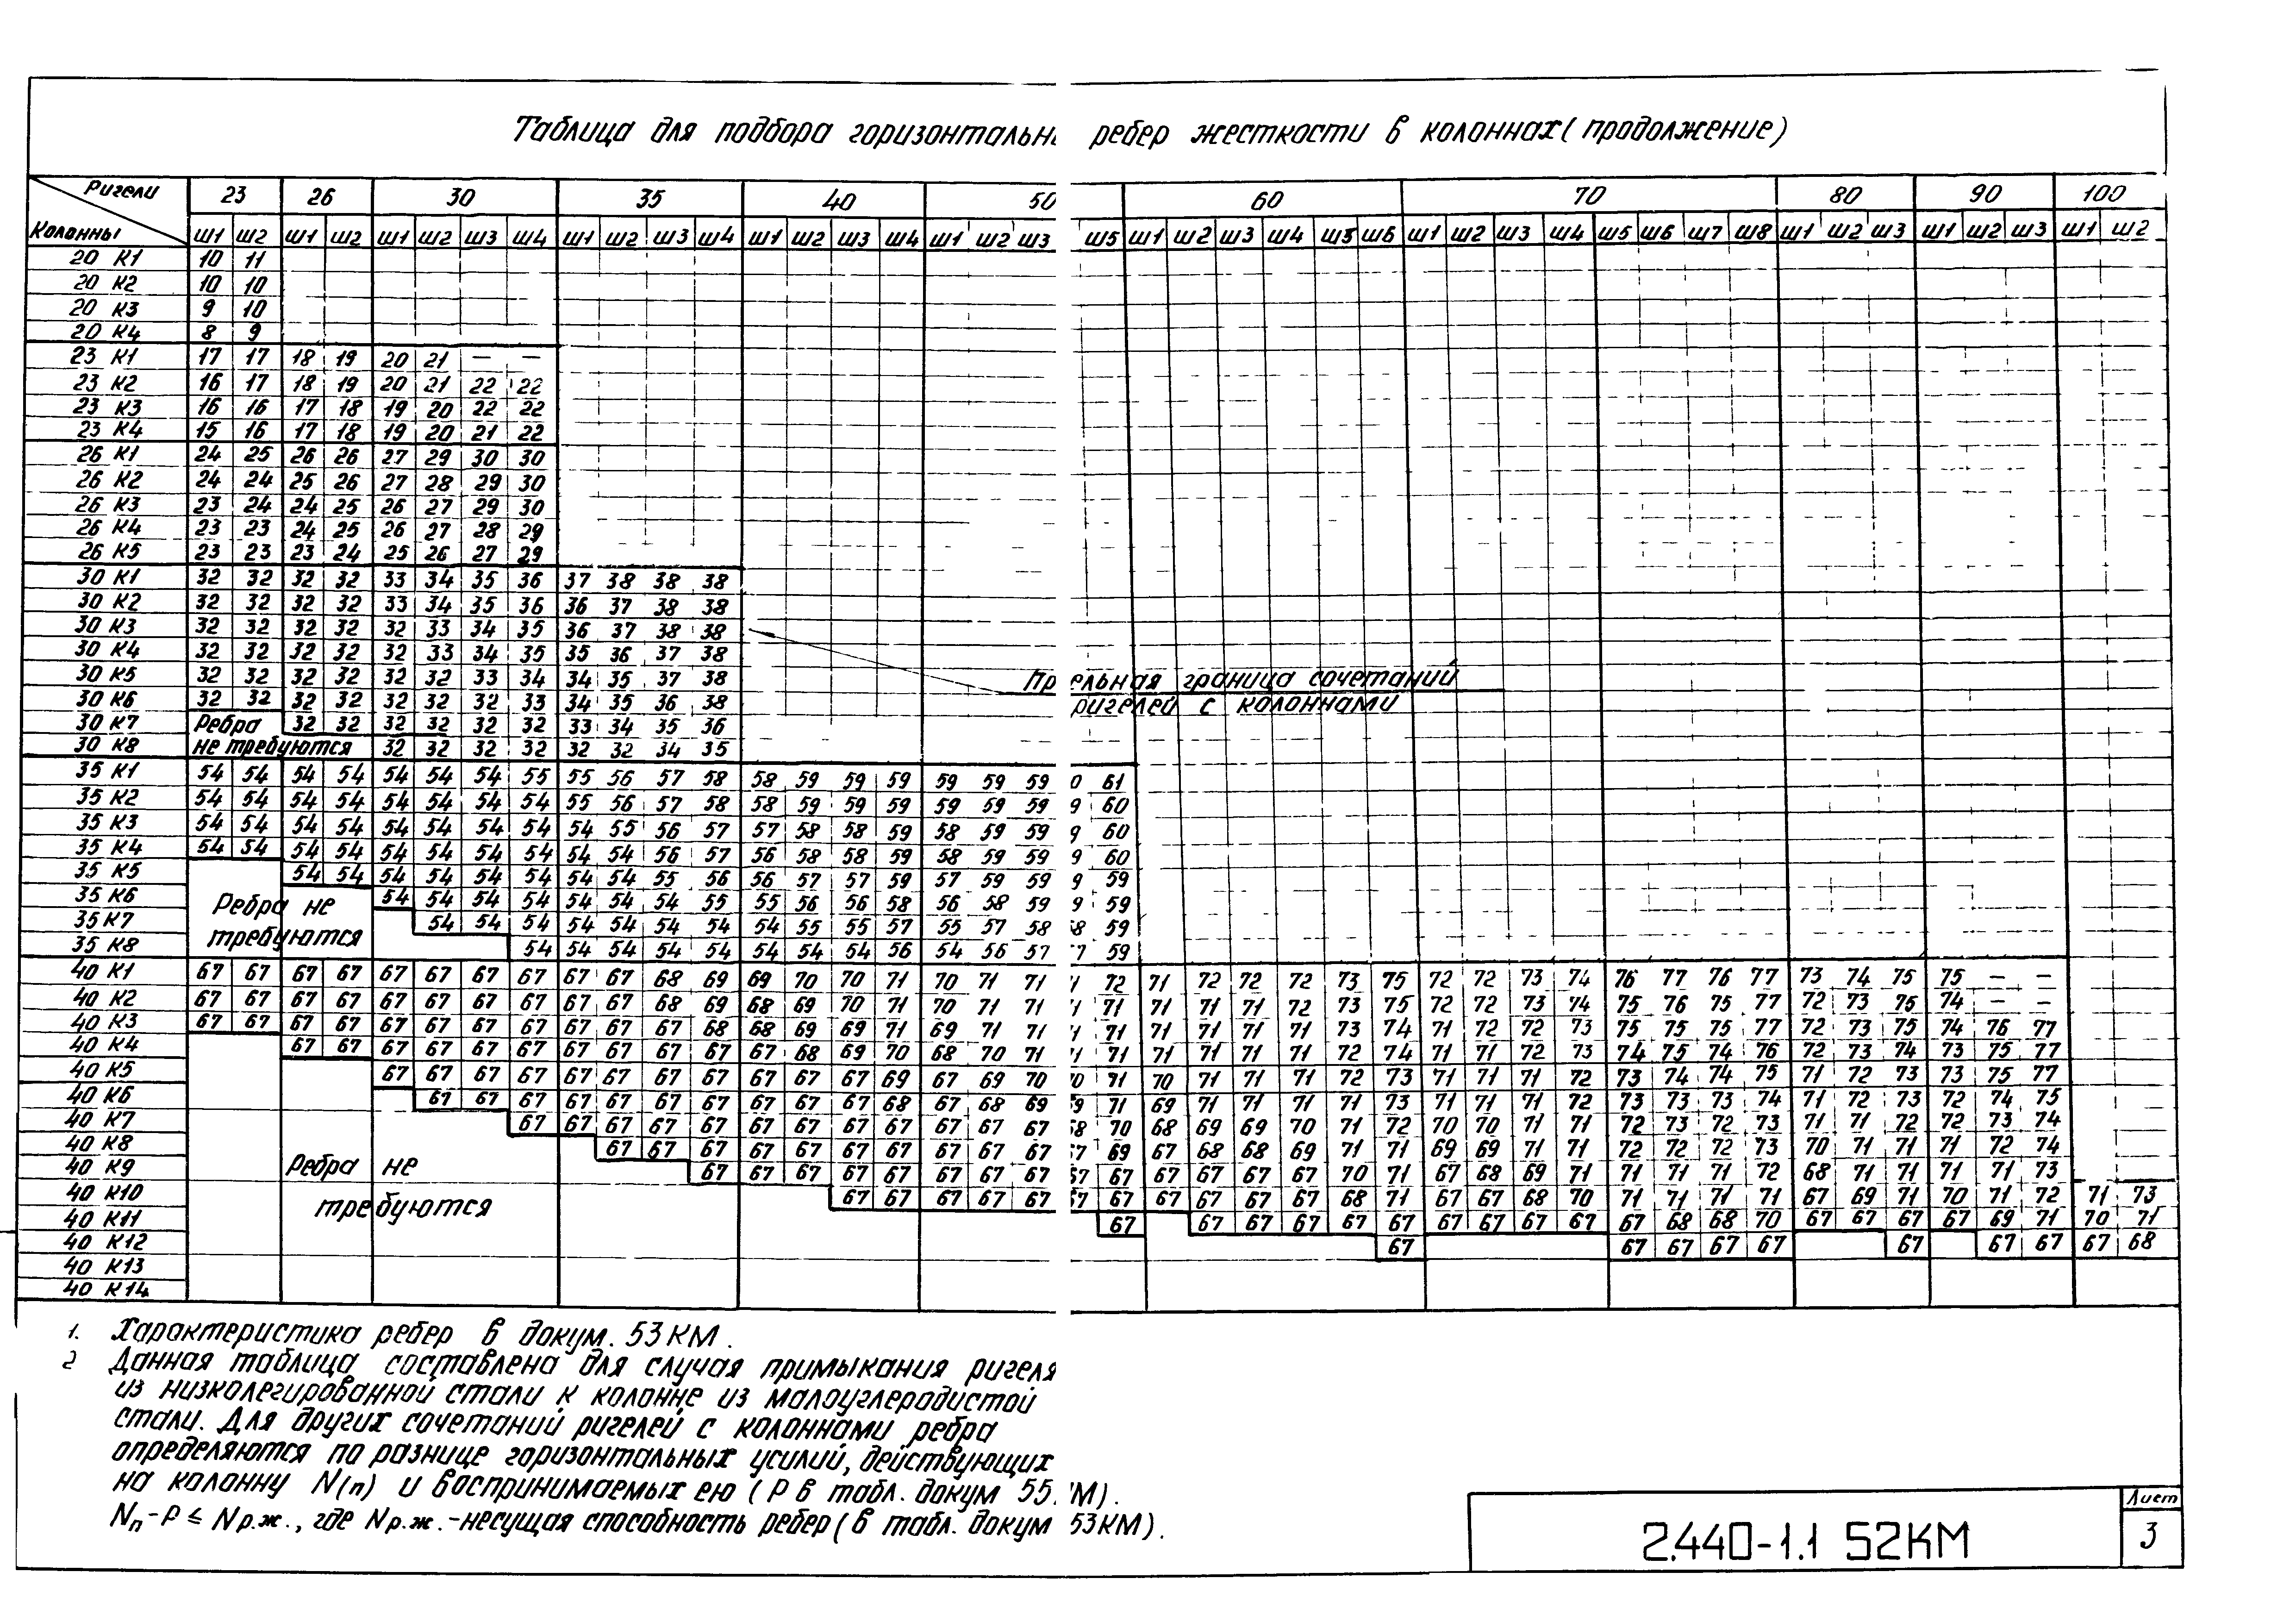 Таблица для подбора горизонтальн ребер жесткости в колоннах (продолжение)
Ригели 23 26 30 35 40 50 60 70 80 90 100
Колонны Ш1 Ш2 Ш1 Ш2 Ш1 Ш2 Ш3 Ш4 Ш1 Ш2 Ш3 Ш4 Ш1 Ш2 Ш3 Ш4 Ш1 Ш2 Ш3 Ш5 Ш1 Ш2 Ш3 Ш4 Ш5 Ш6 Ш1 Ш2 Ш3 Ш4 Ш5 Ш6 Ш7 Ш8 Ш1 Ш2 Ш3 Ш1 Ш2 Ш3 Ш1 Ш2
20 К1 10 11
20 К2 10 10
20 К3 9 10
20 К4 8 9
23 К1 17 17 18 19 20 21 — —
23 К2 16 17 18 19 20 21 22 22
23 К3 16 16 17 18 19 20 22 22
23 К4 15 16 17 18 19 20 21 22
26 К1 24 25 26 26 27 29 30 30
26 К2 24 24 25 26 27 28 29 30
26 К3 23 24 24 25 26 27 29 30
26 К4 23 23 24 25 26 27 28 29
26 К5 23 23 23 24 25 26 27 29
30 К1 32 32 32 32 33 34 35 36 37 38 38 38
30 К2 32 32 32 32 33 34 35 36 36 37 38 38
30 К3 32 32 32 32 32 33 34 35 36 37 38 38
30 К4 32 32 32 32 32 33 34 35 35 36 37 38
30 К5 32 32 32 32 32 32 33 34 34 35 37 38
30 К6 32 32 32 32 32 32 32 33 34 35 36 38
30 К7 Ребра 32 32 32 32 32 32 33 34 35 36
30 К8 не требуются 32 32 32 32 32 32 34 35
Пр ельная граница сочетаний
ригелей с колоннами
35 К1 54 54 54 54 54 54 54 55 55 56 57 58 58 59 59 59 59 59 59 0 61
35 К2 54 54 54 54 54 54 54 54 55 56 57 58 58 59 59 59 59 59 59 9 60
35 К3 54 54 54 54 54 54 54 54 54 55 56 57 57 58 58 59 58 59 59 9 60
35 К4 54 54 54 54 54 54 54 54 54 54 56 57 56 58 58 59 58 59 59 9 60
35 К5 54 54 54 54 54 54 54 54 55 56 56 57 57 59 57 59 59 9 59
35 К6 54 54 54 54 54 54 54 55 55 56 56 58 56 58 59 9 59
35 К7 54 54 54 54 54 54 54 54 55 55 57 55 57 58 8 59
35 К8 54 54 54 54 54 54 54 54 56 54 56 57 7 59
Ребра не
требуются
40 К1 67 67 67 67 67 67 67 67 67 67 68 69 69 70 70 71 70 71 71 1 72 71 72 72 72 73 75 72 72 73 74 76 77 76 77 73 74 75 75 — —
40 К2 67 67 67 67 67 67 67 67 67 67 68 69 68 69 70 71 70 71 71 1 71 71 71 71 72 73 75 72 72 73 74 75 76 75 77 72 73 75 74 — —
40 К3 67 67 67 67 67 67 67 67 67 67 67 68 68 69 69 71 69 71 71 1 71 71 71 71 71 73 74 71 72 72 73 75 75 75 77 72 73 75 74 76 77
40 К4 67 67 67 67 67 67 67 67 67 67 67 68 69 70 68 70 71 1 71 71 71 71 71 72 74 71 71 72 73 74 75 74 76 72 73 74 73 75 77
40 К5 67 67 67 67 67 67 67 67 67 67 67 69 67 69 70 0 71 70 71 71 71 72 73 71 71 71 72 73 74 74 75 71 72 73 73 75 77
40 К6 67 67 67 67 67 67 67 67 67 67 68 67 68 69 9 71 69 71 71 71 71 73 71 71 71 72 73 73 73 74 71 72 73 72 74 75
40 К7 67 67 67 67 67 67 67 67 67 67 67 67 68 70 68 69 69 70 71 72 70 70 71 71 72 73 72 73 71 71 72 72 73 74
40 К8 67 67 67 67 67 67 67 67 67 67 7 69 67 68 68 69 71 71 69 69 71 71 72 72 72 73 70 71 71 71 72 74
40 К9 67 67 67 67 67 67 67 67 67 67 67 67 67 67 70 71 67 68 69 71 71 71 71 72 68 71 71 71 71 73
40 К10 67 67 67 67 67 67 67 67 67 67 67 68 71 67 67 68 70 71 71 71 71 67 69 71 70 71 72 71 73
40 К11 67 67 67 67 67 67 67 67 67 67 67 68 68 70 67 67 67 67 69 71 70 71
40 К12 67 67 67 67 67 67 67 67 67 68
40 К13
40 К14
Ребра не
требуются
1. Характеристика ребер в докум. 53 КМ.
2 Данная таблица составлена для случая примыкания ригеля
из низколегированной стали к колонне из малоуглеродистой
стали. Для других сочетаний ригелей с колоннами ребра
определяются по разнице горизонтальных усилий, действующих
на колонну N(п) и воспринимаемых ею (Р в табл. докум 55 КМ).
Nп - Р ≤ Nр.ж., где Nр.ж. - несущая способность ребер (в табл. докум 53КМ).
2.440-1.1 52КМ
Лист
3